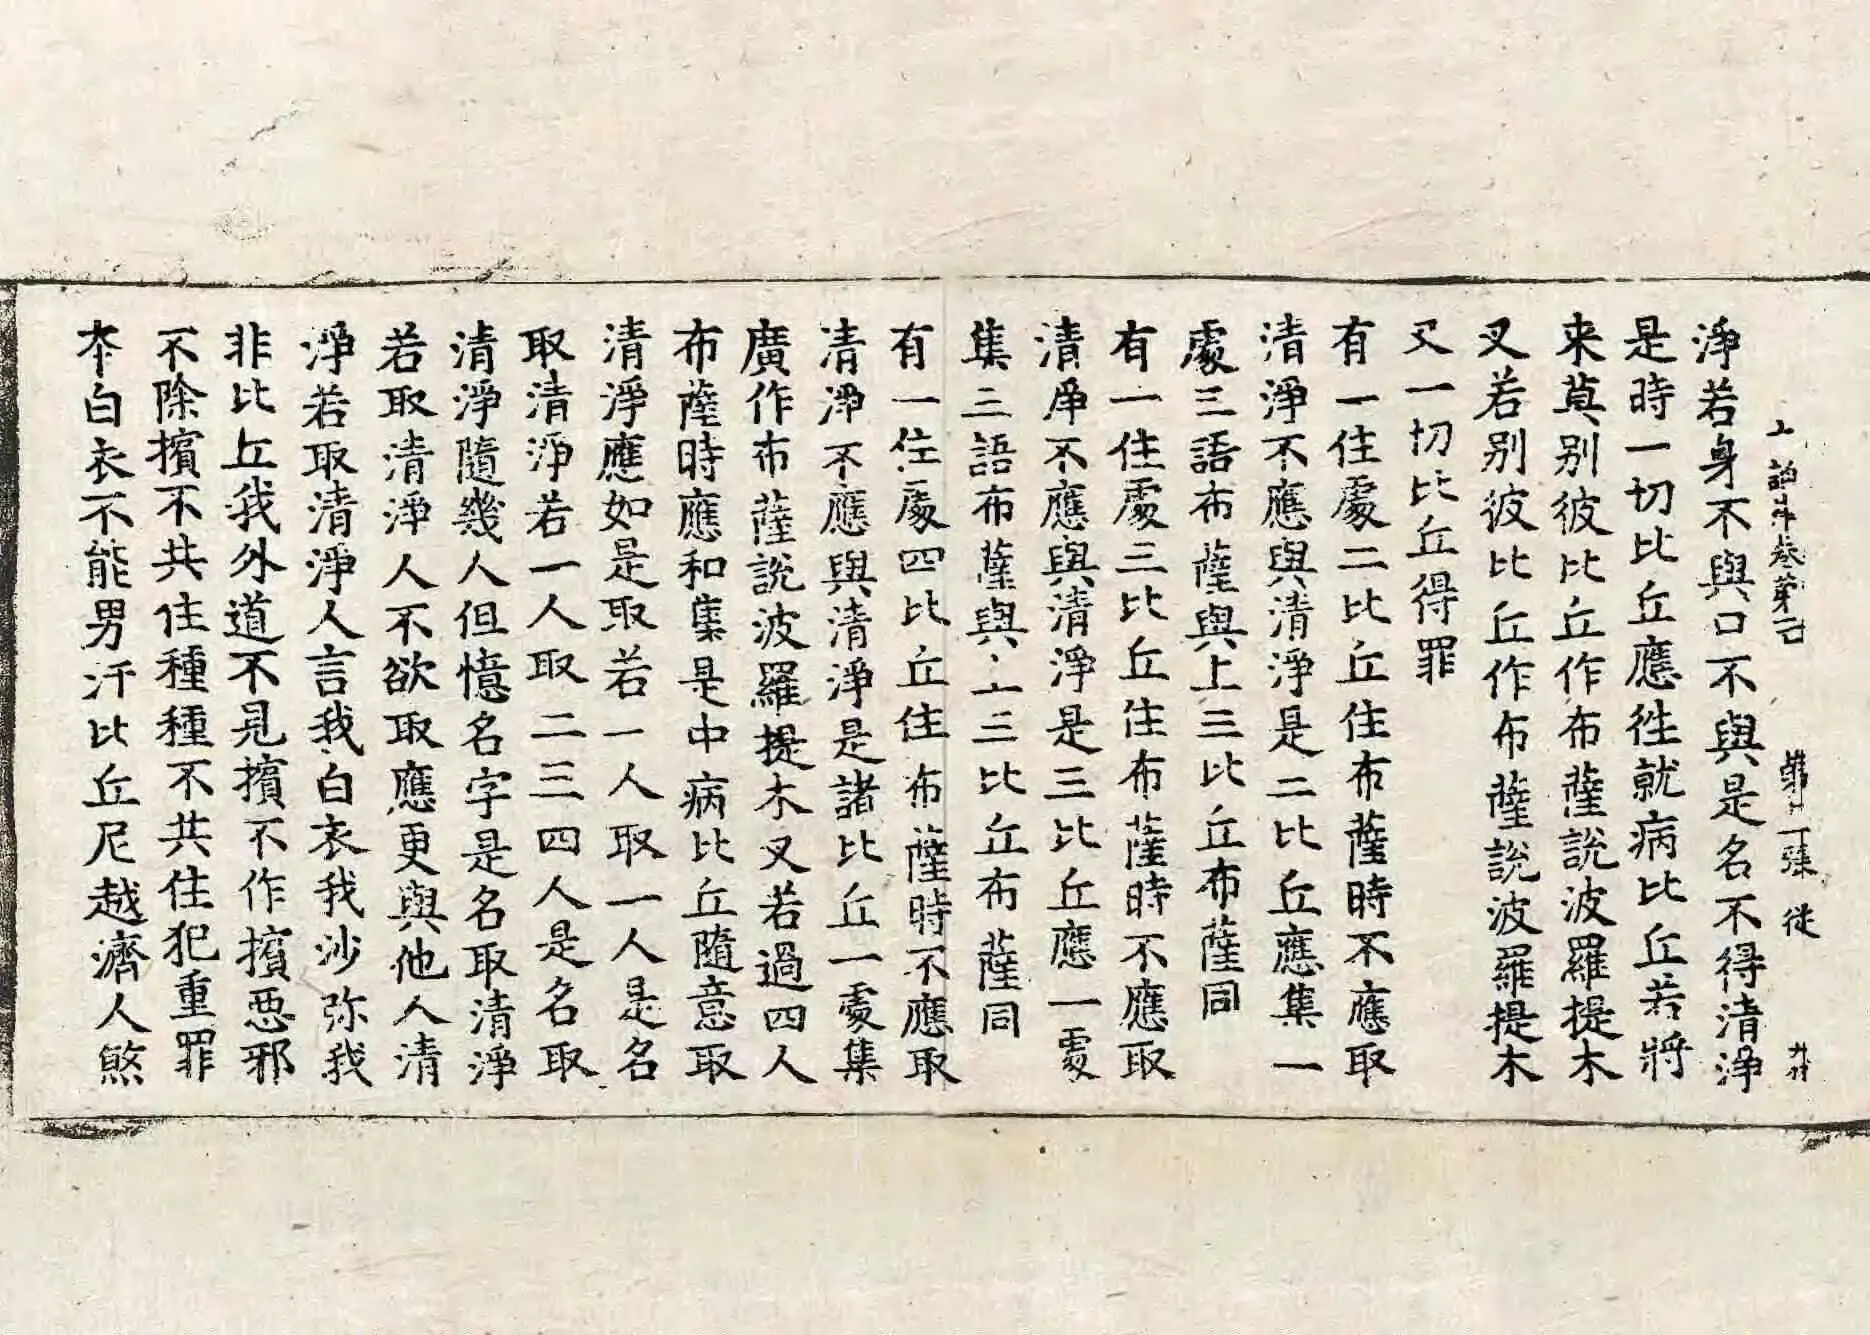 淨若身不與口不與是名不得清淨
是時一切比丘應徃就病比丘若將
来莫别彼比丘作布薩說波羅提木
叉若别彼比丘作布薩說波羅提木
叉一切比丘得罪
有一住處二比丘住布薩時不應取
清淨不應與清淨是二比丘應集一
處三語布薩與上三比丘布薩同
有一住處三比丘住布薩時不應取
清淨不應與清淨是三比丘應一處
集三語布薩與上三比丘布薩同
有一住處四比丘住布薩時不應取
清淨不應與清淨是諸比丘一處集
廣作布薩說波羅提木叉若過四人
布薩時應和集是中病比丘隨意取
清淨應如是取若一人取一人是名
取清淨若一人取二三四人是名取
清淨隨幾人但憶名字是名取清淨
若取清淨人不欲取應更與他人清
淨若取清淨人言我白衣我沙弥我
非比丘我外道不見擯不作擯惡邪
不除擯不共住種種不共住犯重罪
本白衣不能男汙比丘尼越濟人煞